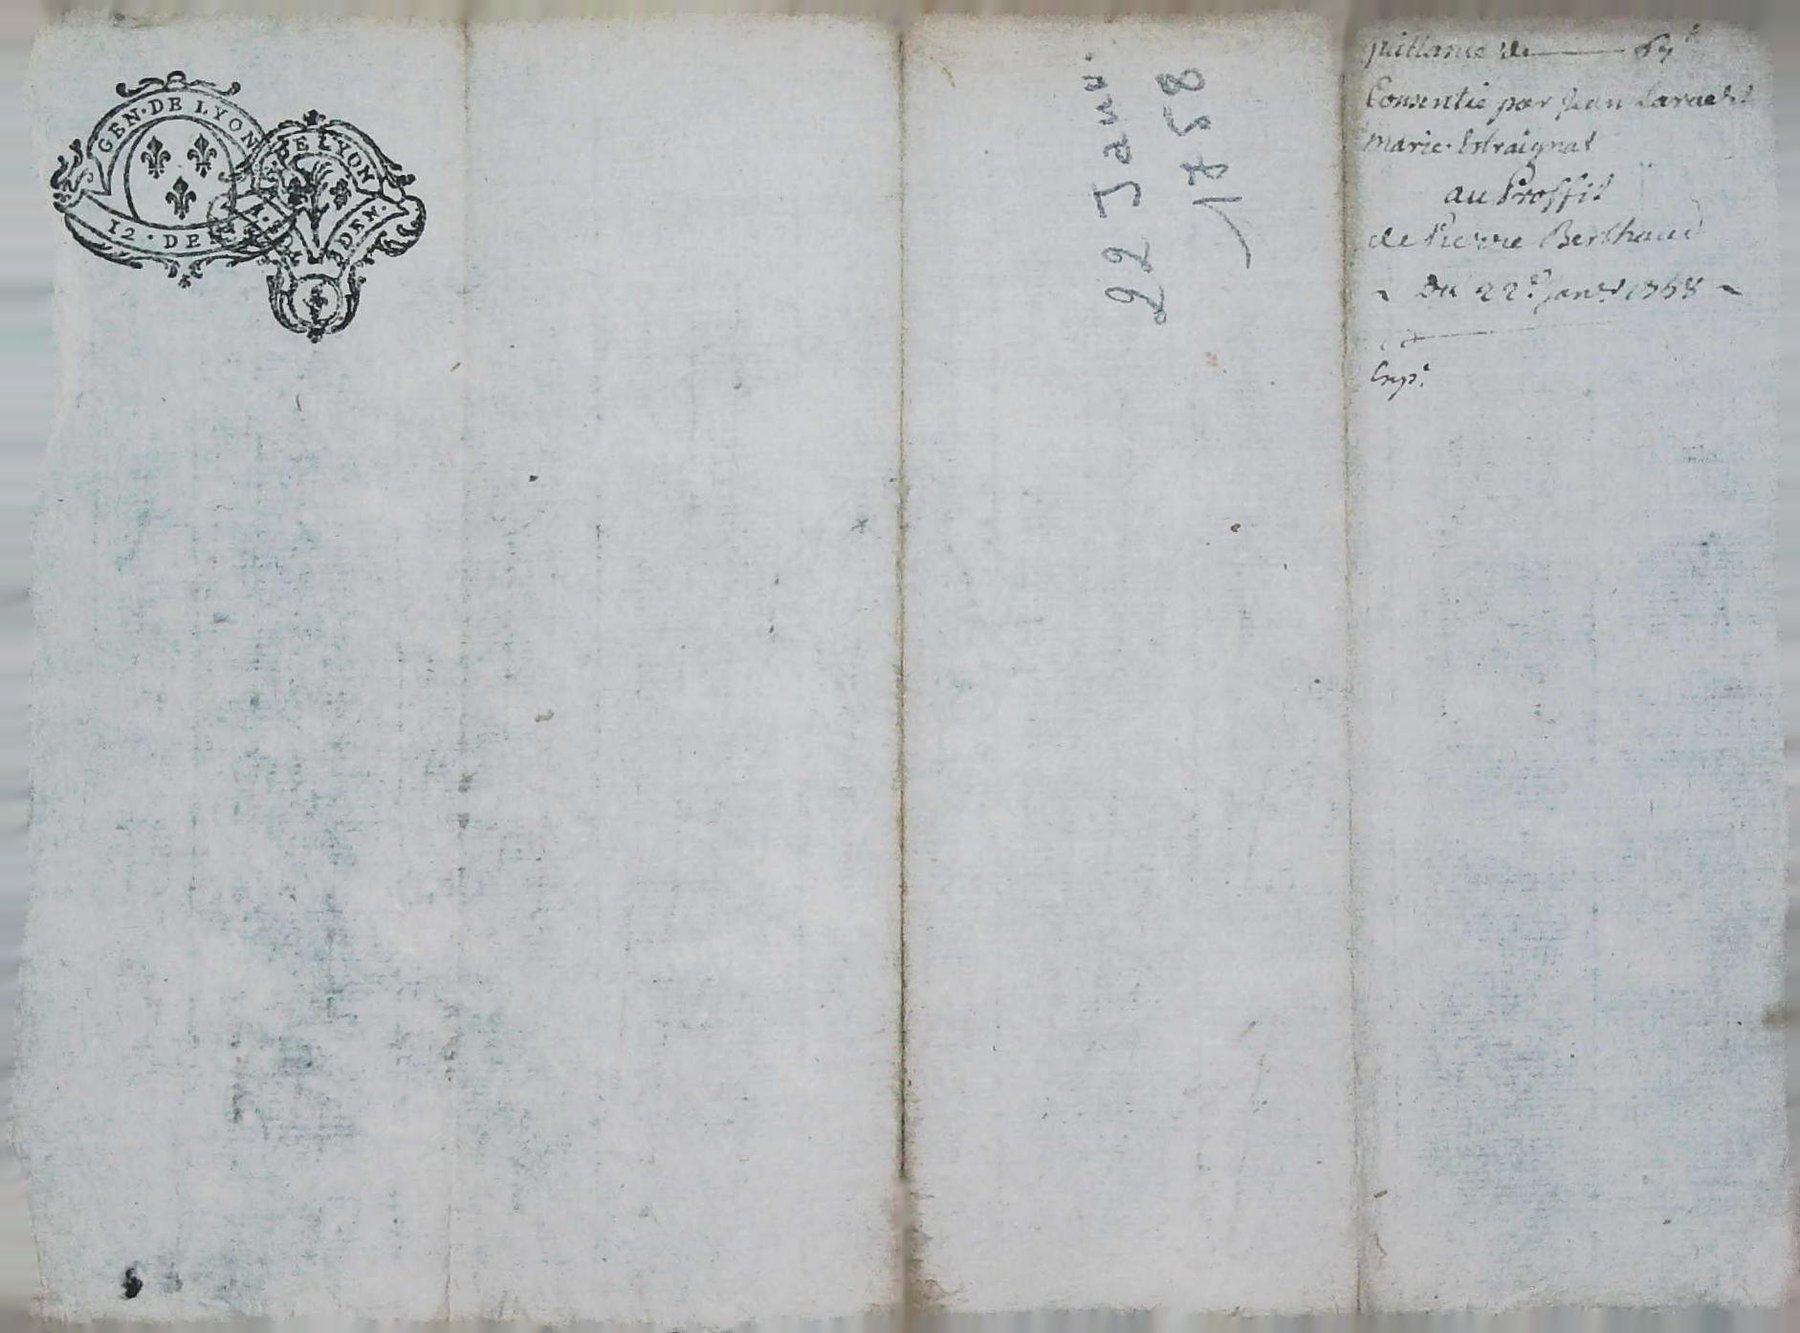 GEN·DE LYON
12·DEN
DE LYON
DEN·
22 Janv.
1758
quittance de ——— 67
Consentie par Jean
marie
au Proffit
de Pierre Berthaud
~ Du 22e janer 1758 ~
Exp.e